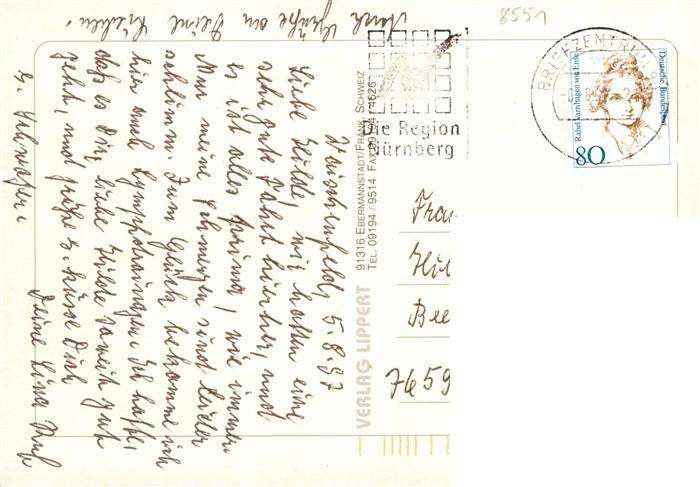 Heiligenstadt, 5.8.97
Liebe Hilde, wir hatten eine
sehr gute Fahrt hierher, und
es ist alles prima, wie immer.
Nur meine Schmerzen sind leider
schlimm. Zum Glück bekomme ich
hier auch Lymphdrainagen. Ich hoffe,
daß es Dir, liebe Hilde soweit gut
geht, und grüße u. küsse Dich
Deine Lina
u. Schwager
Auch Grüße an Deine Lieben.
VERLAG LIPPERT
91316 EBERMANNSTADT/FRÄNK. SCHWEIZ
TEL. 09194 / 9514
Die Region
Nürnberg
8551
BRIEFZENTRUM
Deutsche Bundespost
Rahel Varnhagen von Ense
80
Frau
Hil
Bee
7659